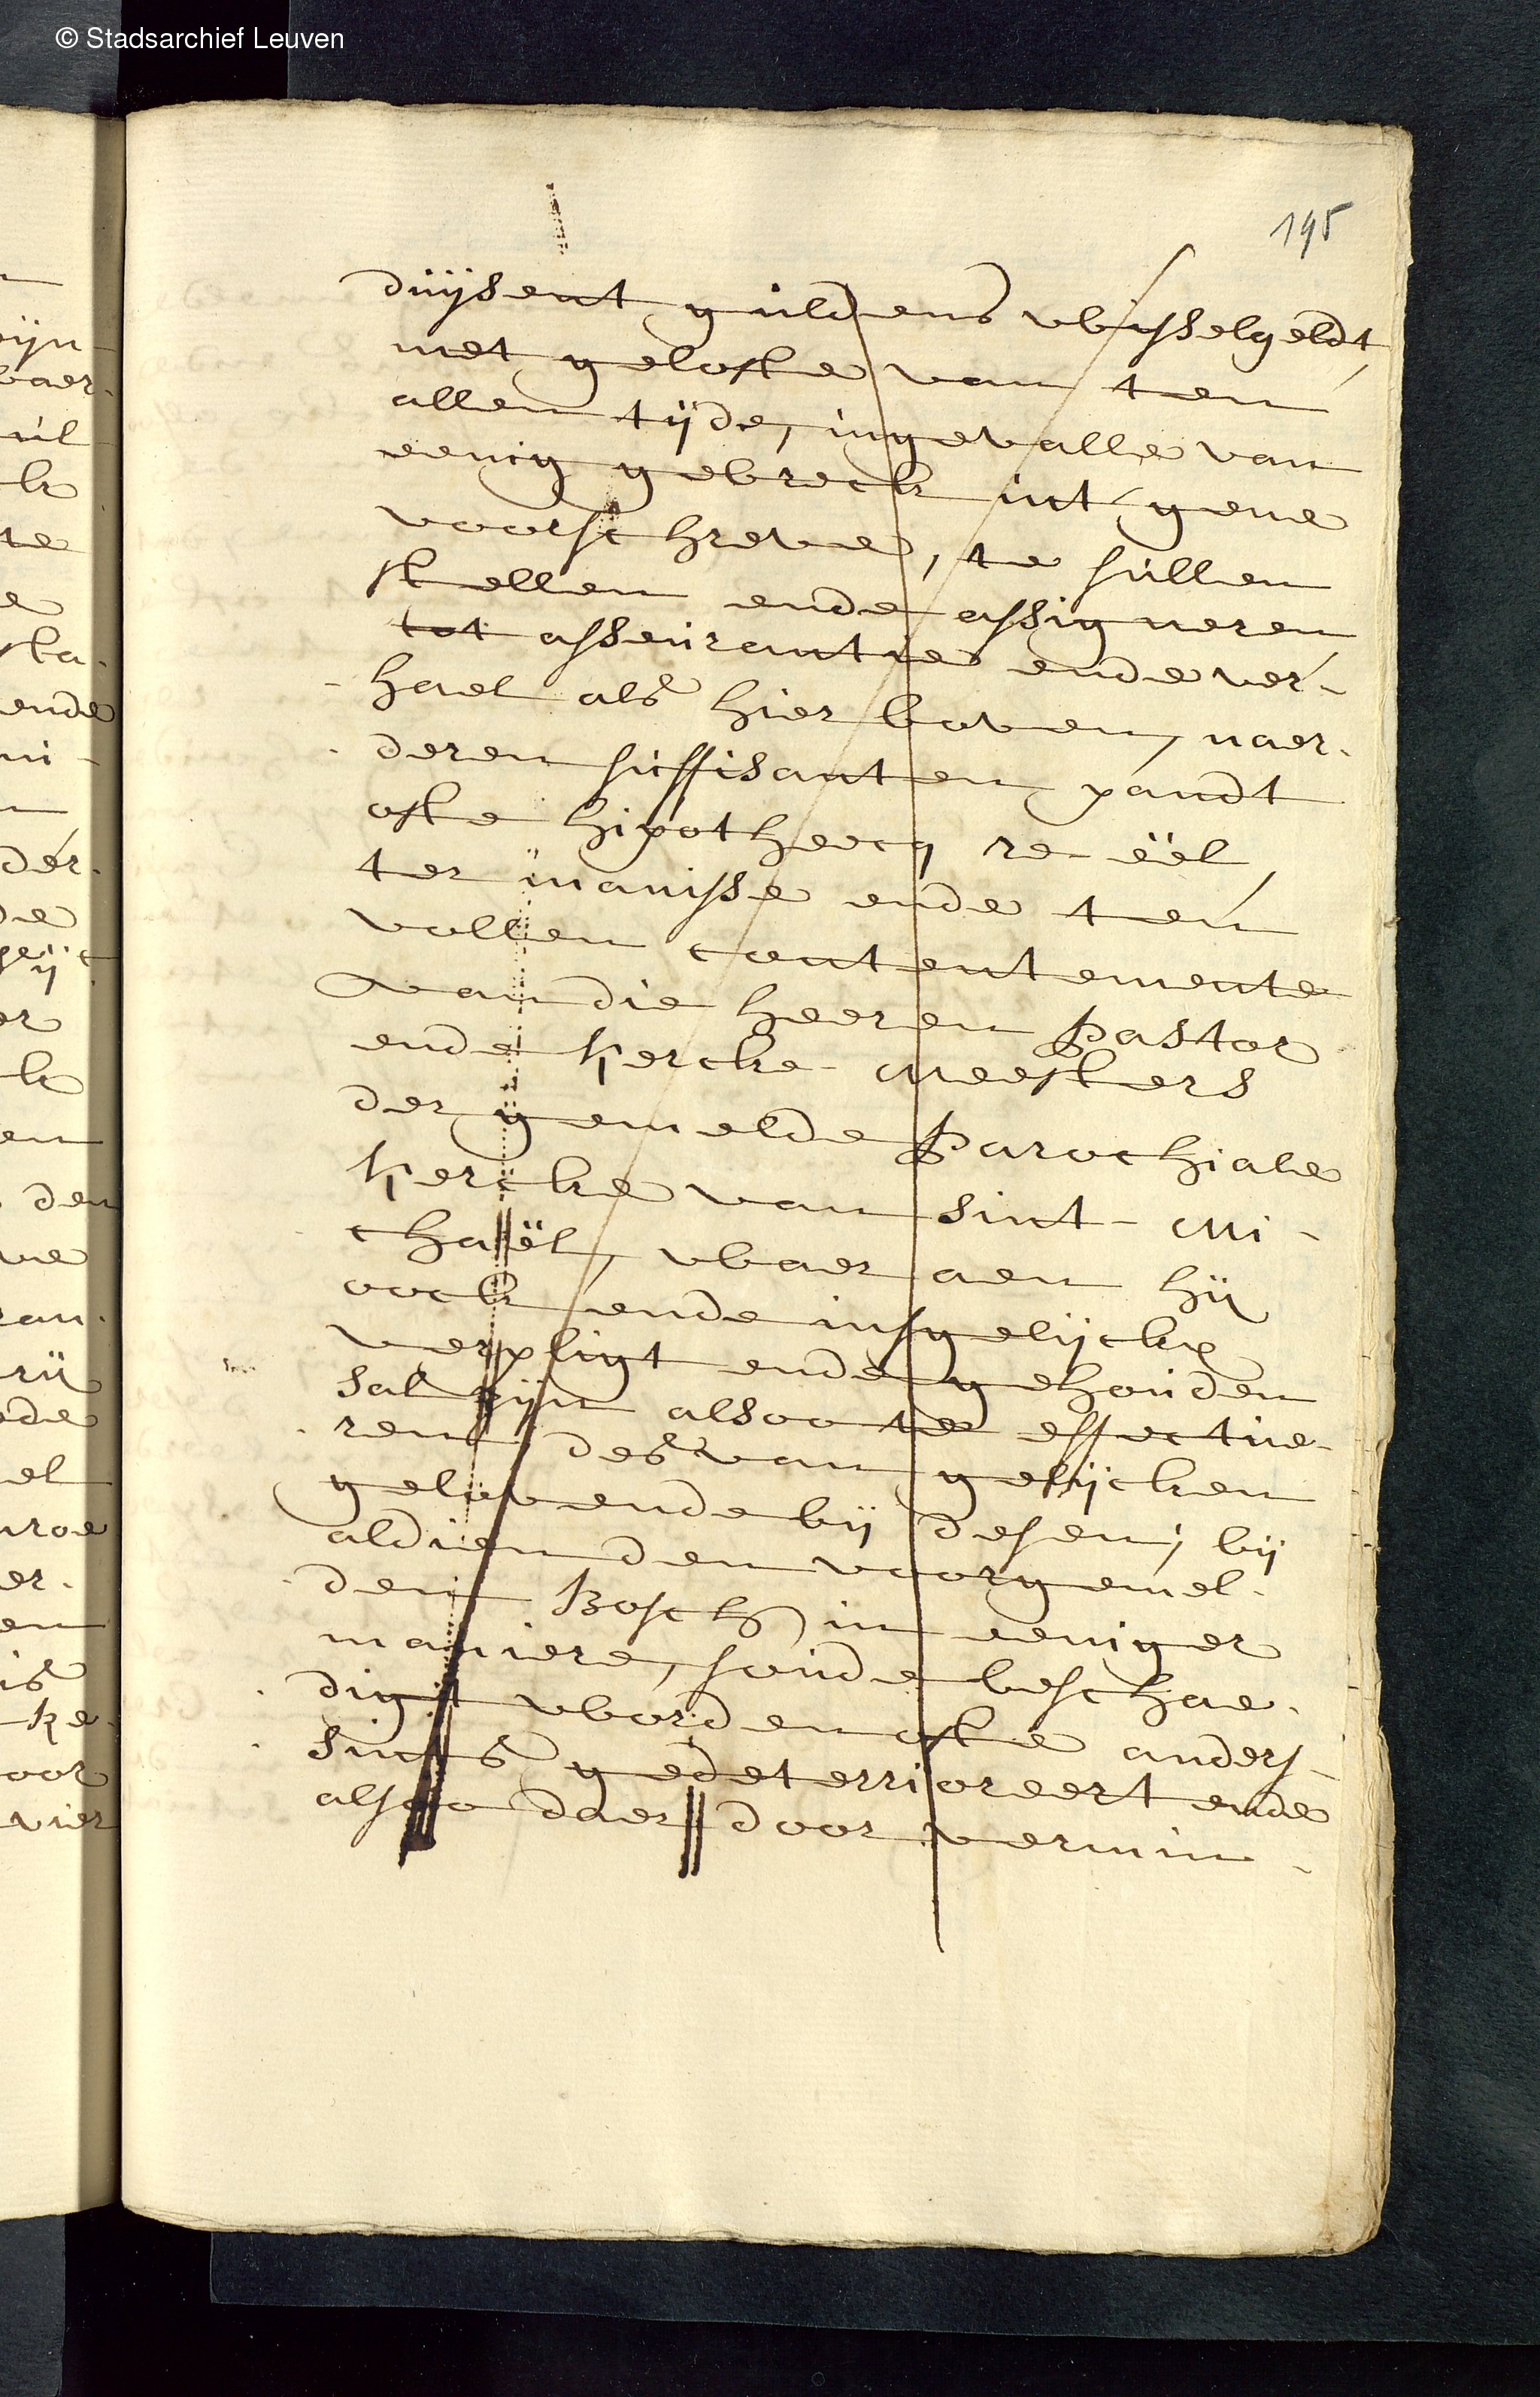 © Stadsarchief Leuven
195
duijsent guldens wisselgeldt,
met gelofte van ten
allen tijde, ingevalle van
eenig gebreck int gene
voorschreve, te sullen
stellen ende assigneren
tot asseurantie ende ver-
hael als hier boven, naer-
deren suffisanten pandt
ofte hipotheecq re-eël,
ter manisse ende ten
vollen contentemente
van die heeren Pastor
ende Kercke-Meesters
der gemelde Parochiale
Kercke van Sint-Mi-
chaël, waer aen hij
oock ende insgelijckx
verpligt ende gehouden
sal zijn alsoo te effectue-
ren, des van gelijcken
gelovende bij desen, bij
aldien den voorgemel-
den Bosch in eeniger
maniere, soude beschae-
digt worden ofte anders-
sints gedeterrioreert ende
alsoo daer door vermin-